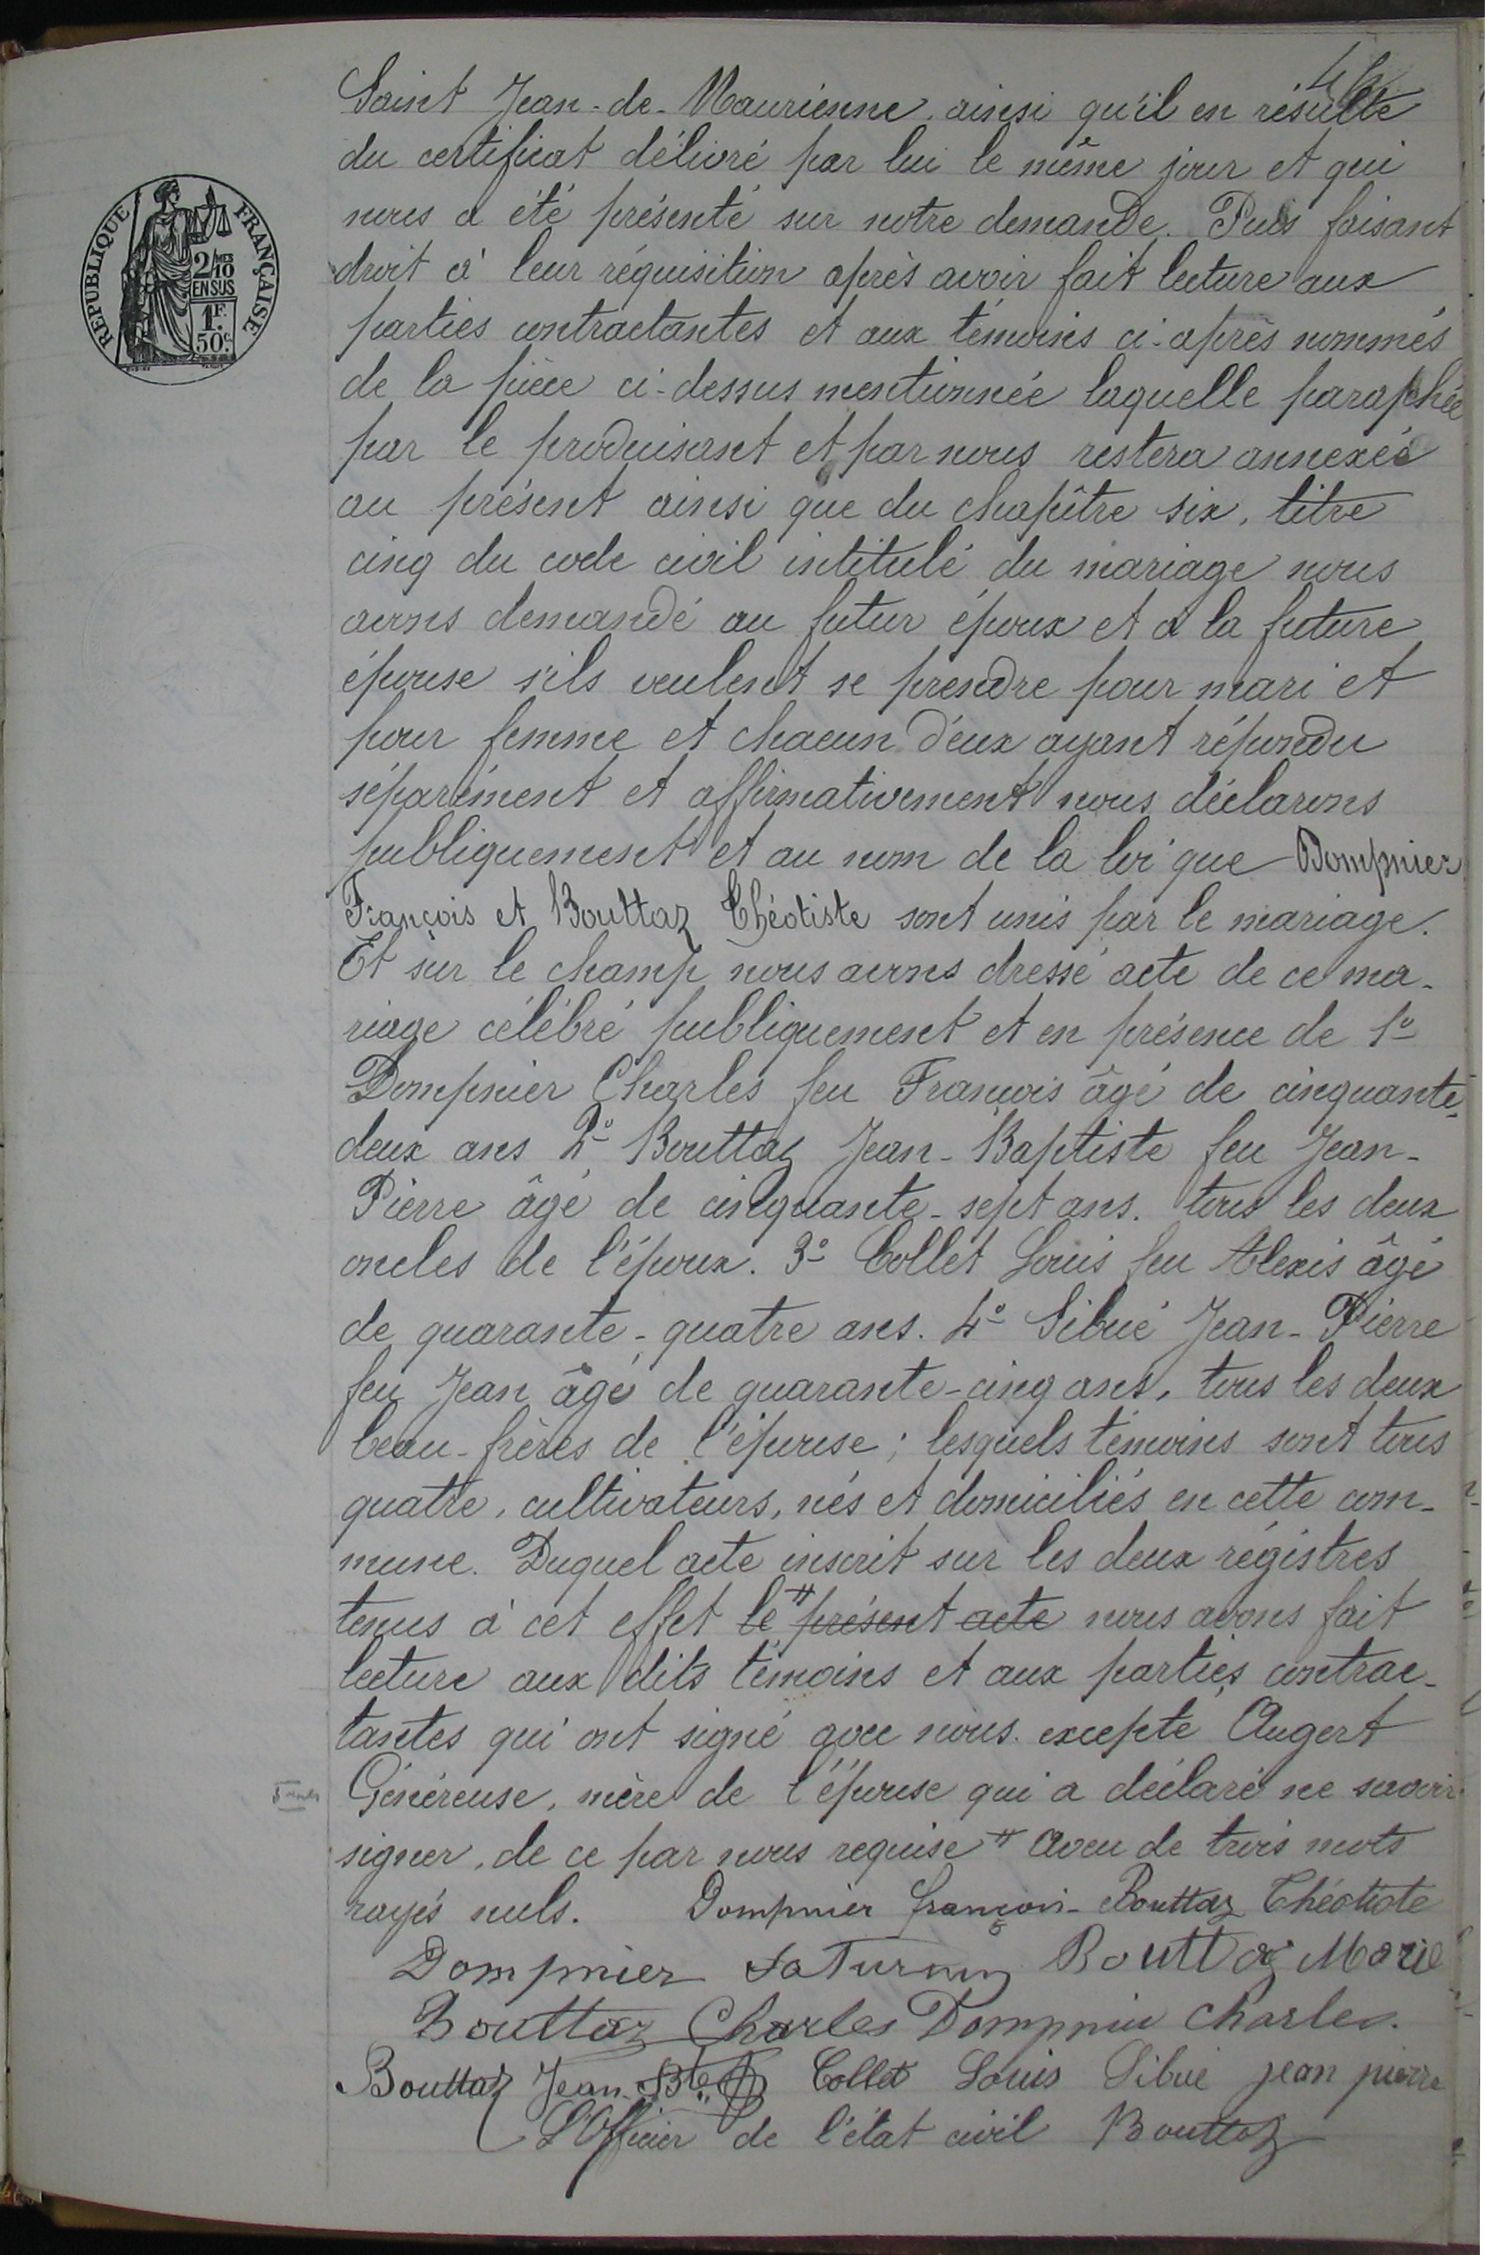 Saint Jean-de-Maurienne, ainsi qu'il en résulte
du certificat délivré par lui le même jour et qui
nous a été présenté sur notre demande. Puis faisant
droit à leur réquisition après avoir fait lecture aux
parties contractantes et aux témoins ci-après nommés
de la pièce ci-dessus mentionnée laquelle paraphée
par le produisant et par nous restera annexée
au présent ainsi que du chapître six, titre
cinq du code civil intitulé du mariage nous
avons demandé au futur époux et à la future
épouse s'ils veulent se prendre pour mari et
pour femme et chacun d'eux ayant répondu
séparément et affirmativement nous déclarons
publiquement et au nom de la loi que Dompnier
François et Bouttaz Théotiste sont unis par le mariage.
Et sur le champ nous avons dressé acte de ce ma-
riage célébré publiquement et en présence de 1º
Dompnier Charles feu François âgé de cinquante-
deux ans 2º Bouttaz Jean-Baptiste feu Jean-
Pierre âgé de cinquante-sept ans. tous les deux
oncles de l'époux. 3º Collet Louis feu Alexis âgé
de quarante-quatre ans. 4º Sibué Jean-Pierre
feu Jean âgé de quarante-cinq ans, tous les deux
beau-frères de l'épouse; lesquels témoins sont tous
quatre, cultivateurs, nés et domiciliés en cette com-
mune. Duquel acte inscrit sur les deux régistres
tenus à cet effet le # présent acte nous avons fait
lecture aux dits témoins et aux parties contrac-
tantes qui ont signé avec nous. excepté Augert
Généreuse, mère de l'épouse qui a déclaré ne savoir
signer, de ce par nous requise # Aveu de trois mots
rayés nuls. Dompnier françois - Bouttaz Théotiste
Dompnier Saturnin Bouttaz Marie
Bouttaz Charles Dompnier Charles.
Bouttaz Jean Bte Collet Louis Sibué jean pierre
L'Officier de l'état civil Bouttaz
REPUBLIQUE FRANÇAISE
2/10 MES
EN SUS
1F.
50C.